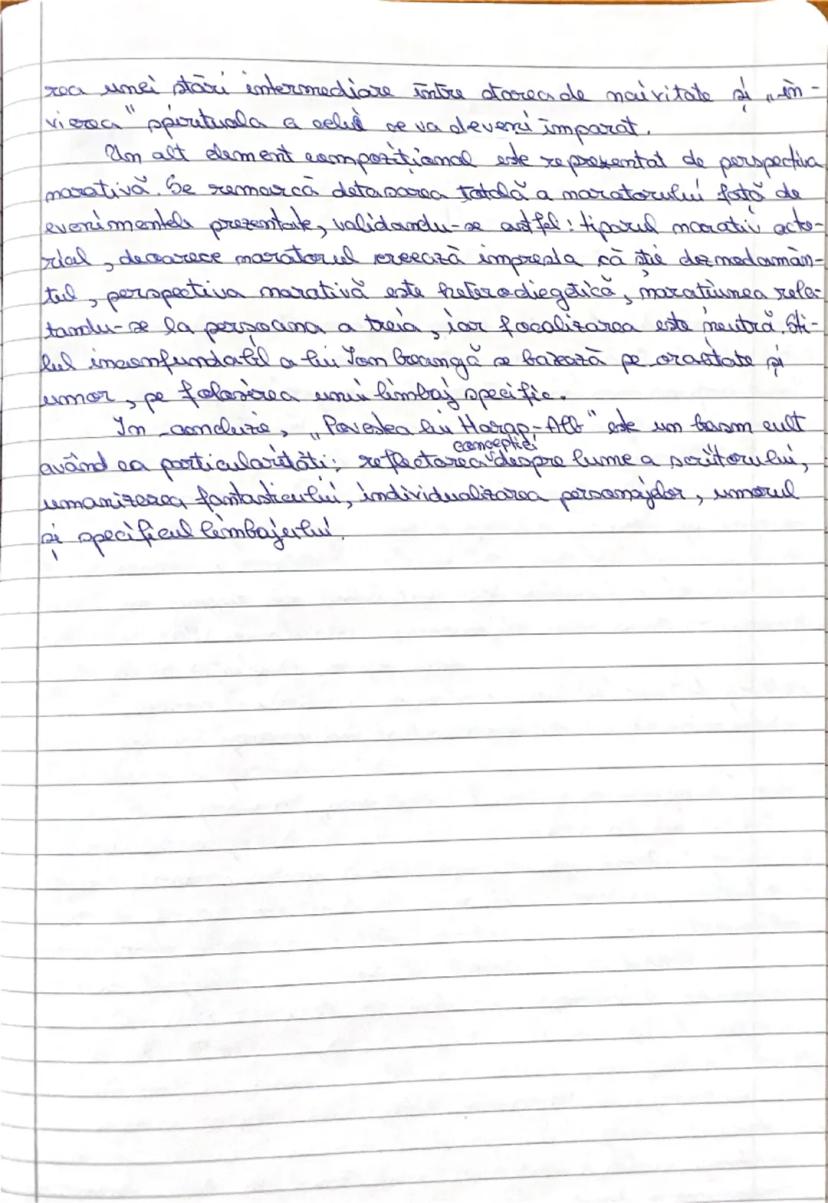 rea unei stări intermediare între starea de naivitate și „în-
vierea" spirituala a celui ce va deveni împarat.
Un alt element compozițional este reprezentat de perspectiva
narativă. Se remarcă detasarea totală a naratorului față de
evenimentele prezentate, validandu-se astfel: tiparul narativ acto-
rial, deoarece naratorul creează impresia că știe deznodamân-
tul, perspectiva narativă este heterodiegetică, naratiunea rela-
tandu-se la persoana a treia, iar focalizarea este neutră. Sti-
lul inconfundabil a lui Ion Creangă se bazează pe oralitate și
umor, pe folosirea unui limbaj specific.
In concluzie, „Povestea lui Harap-Alb" este un basm cult
având ca particularități: reflectarea conceptiei despre lume a scriitorului,
umanizarea fantasticului, individualizarea personajelor, umorul
și specificul limbajului.